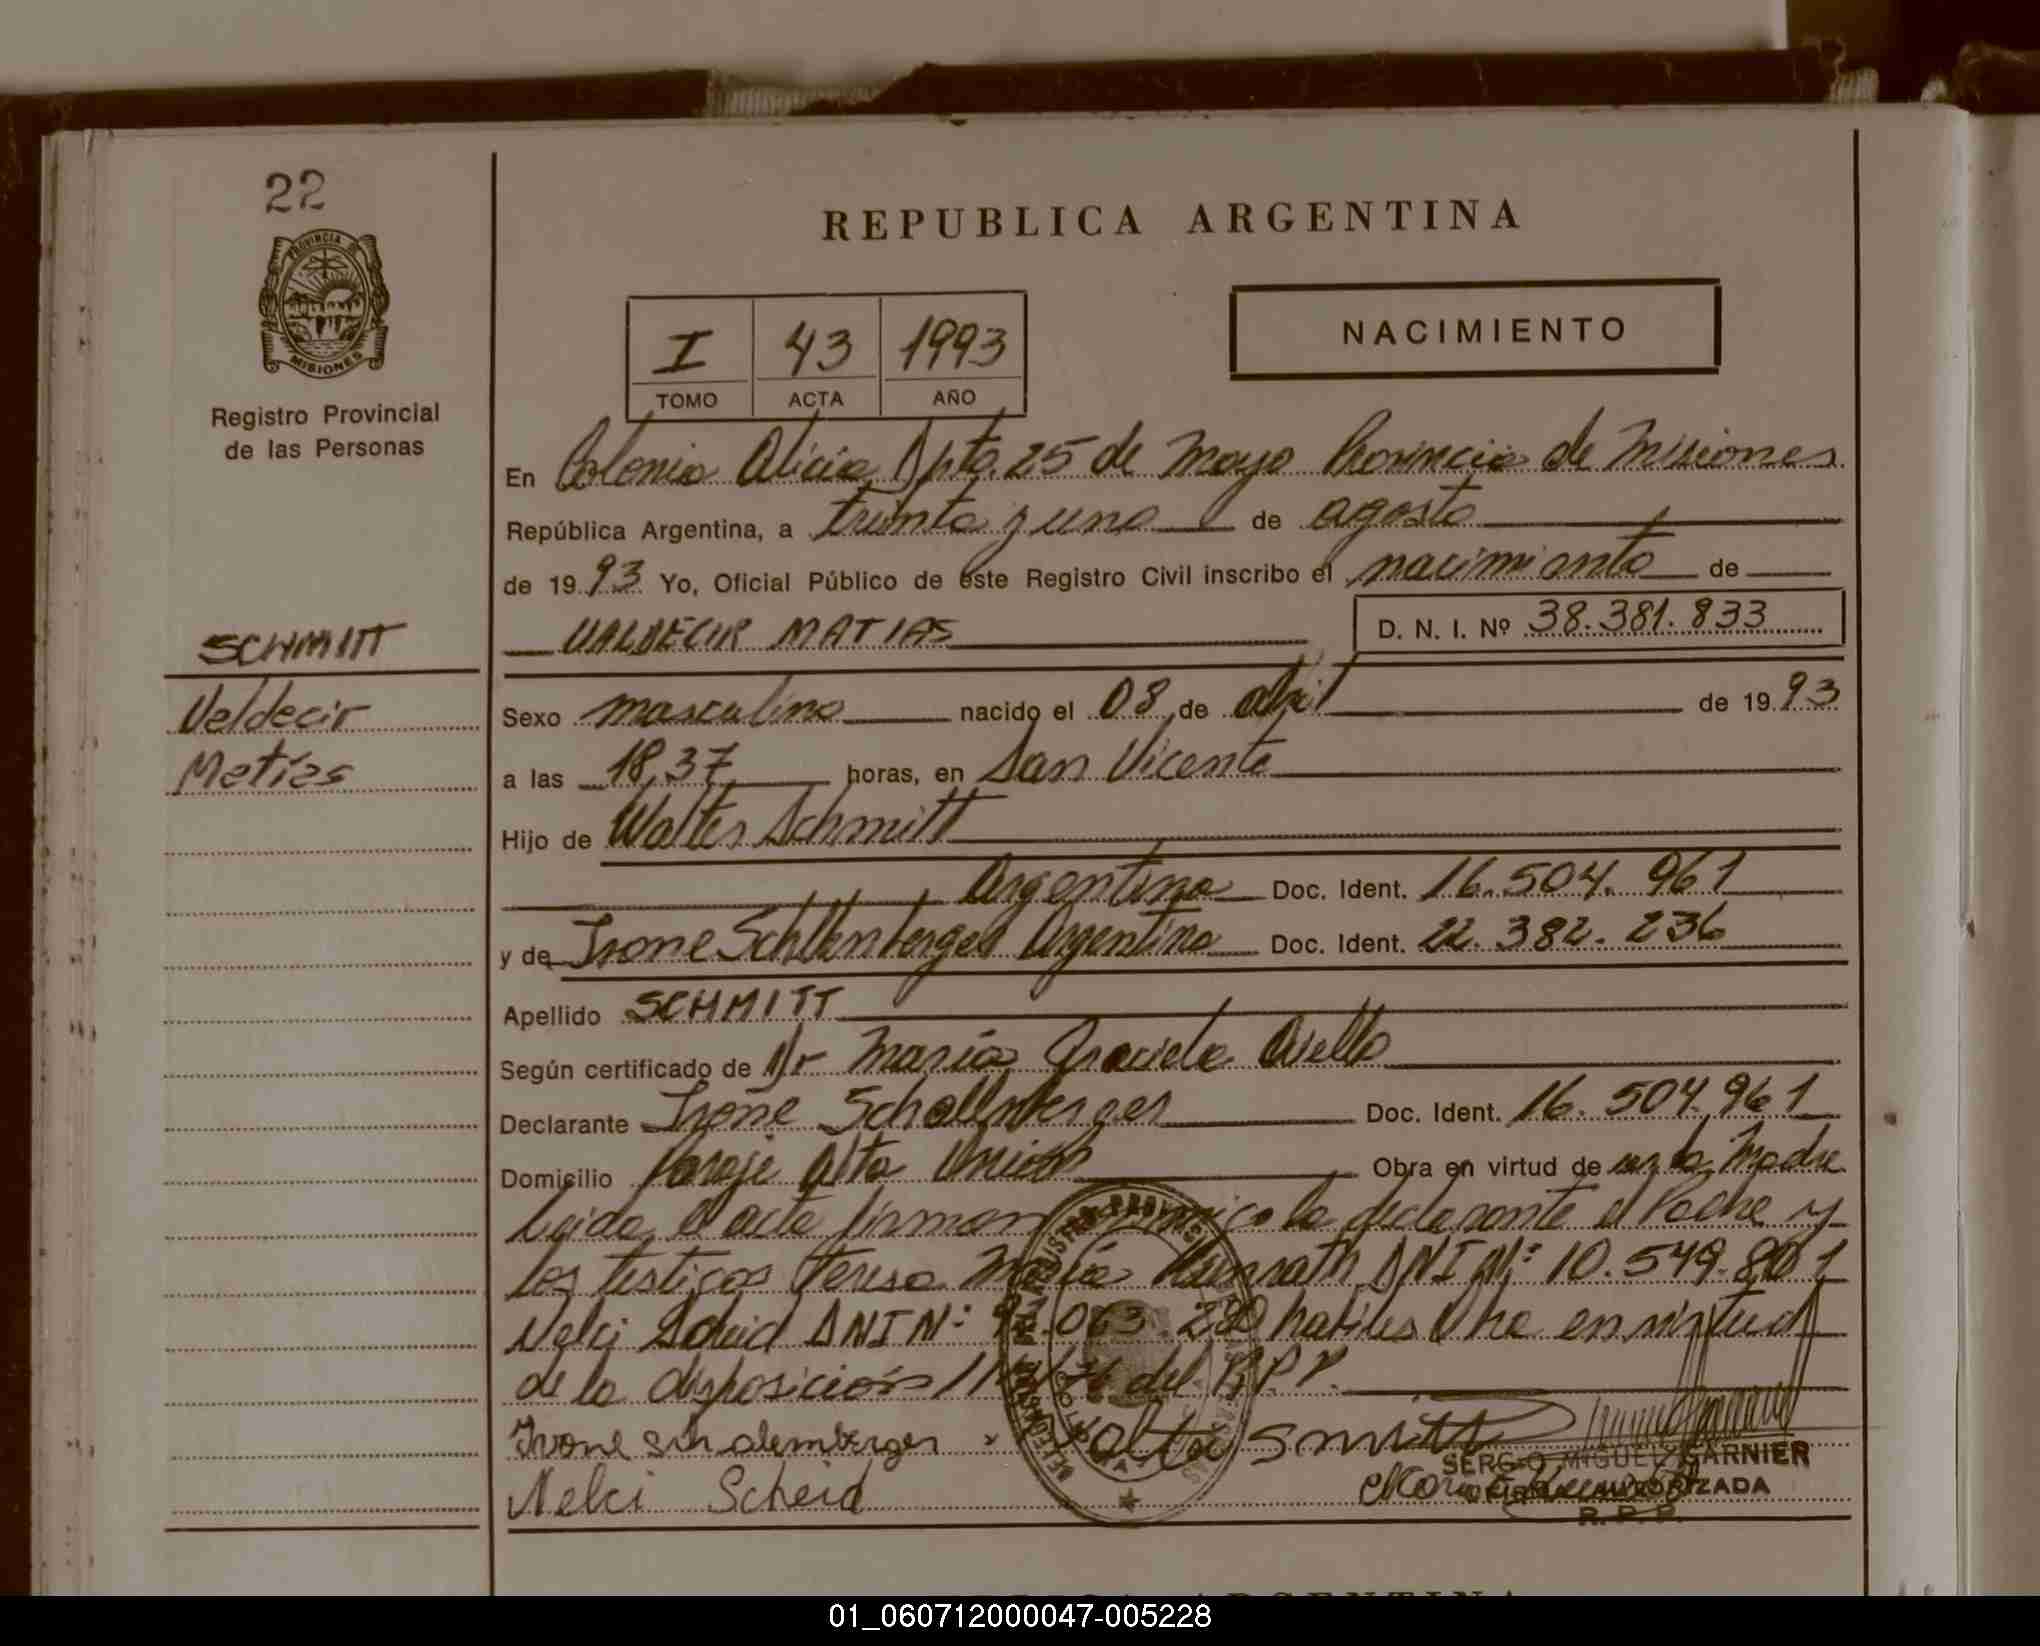 22
REPUBLICA ARGENTINA
PROVINCIA DE
MISIONES
Registro Provincial
de las Personas
I 43 1993
TOMO ACTA AÑO
NACIMIENTO
En Colonia Alicia Dpto. 25 de Mayo Provincia de Misiones
República Argentina, a treinta y uno de agosto
de 1993 Yo, Oficial Público de este Registro Civil inscribo el nacimiento de
VALDECIR MATIAS D. N. I. Nº 38.381.833
SCHMITT
Valdecir
Matías
Sexo masculino nacido el 08 de abril de 1993
a las 18,37 horas, en San Vicente
Hijo de Walter Schmitt
Argentino Doc. Ident. 16.504.961
y de Ivone Schllenberger Argentina Doc. Ident. 22.382.236
Apellido SCHMITT
Según certificado de Dr María Graciela Aiello
Declarante Ivone Schallenberger Doc. Ident. 16.504.961
Domicilio Paraje Alto Unión Obra en virtud de ser la Madre
Leida el acta firman conmigo la declarante el Padre y
los testigos Teresa María Kunrath DNI Nº: 10.549.801
Nelci Scheid DNI Nº: .063.280 habiles Una en virtud
de la disposición del R.P.P.
Ivone schalemberger Walter Smitt
SERGIO MIGUEL GARNIER
Nelci Scheid María AUTORIZADA
R. P. P.
ARGENTINA
01_060712000047-005228